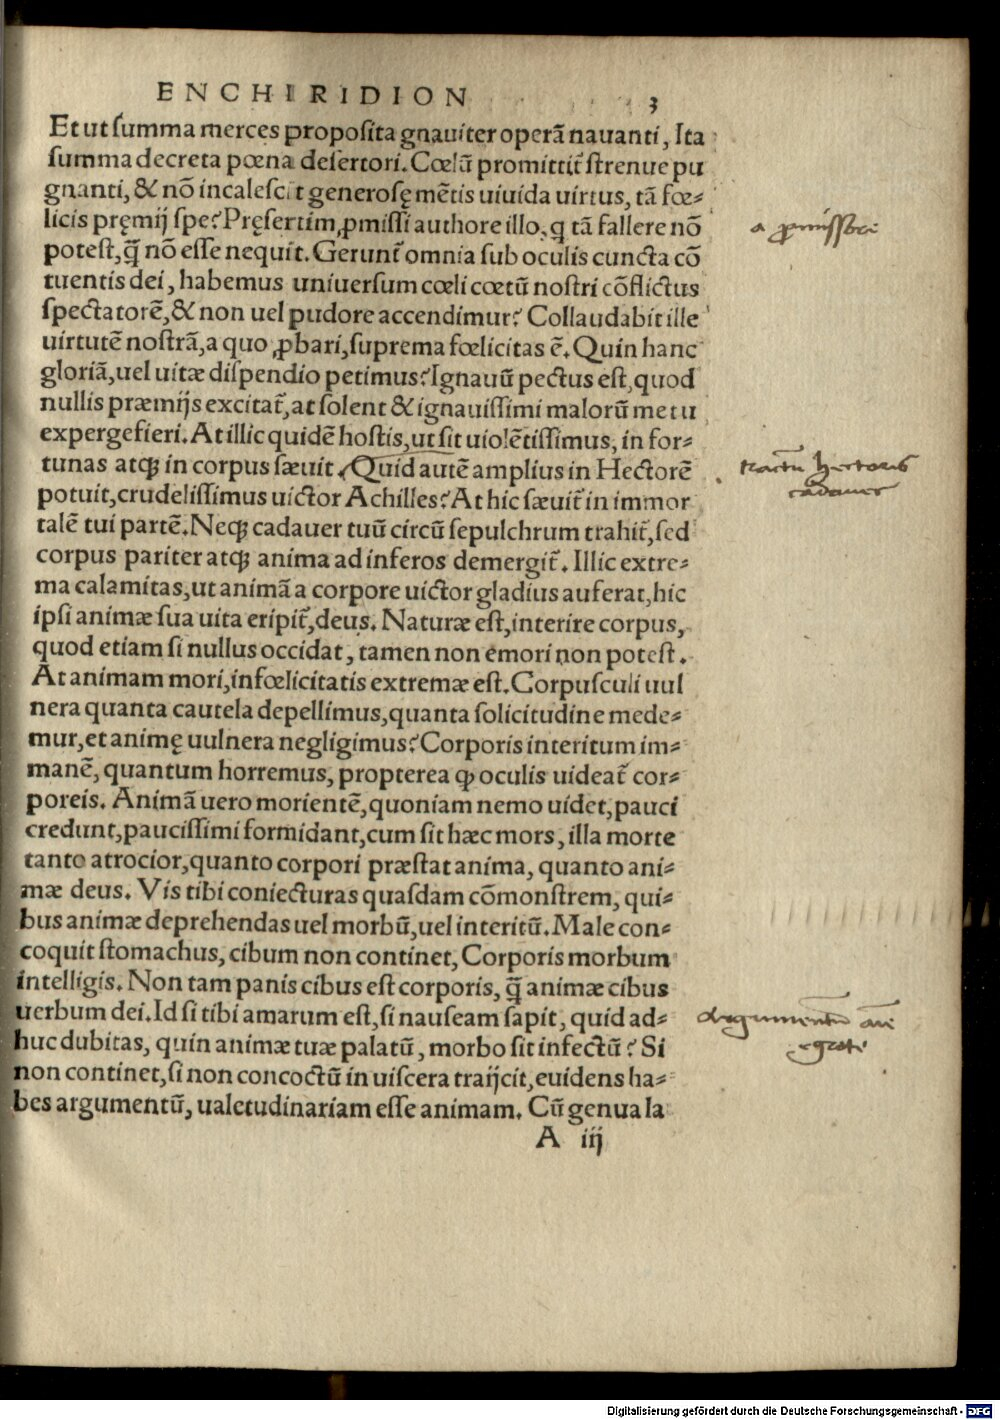 ENCHIRIDION 3
Et ut summa merces proposita gnauiter operā nauanti, Ita
summa decreta pœna desertori. Cœlū promittit̃ strenue pu
gnanti, & nō incalescit generosę mētis uiuida uirtus, tā fœ-
licis pręmij spe? Pręsertim, ꝓmissi authore illo, q tā fallere nō
potest, q̄ nō esse nequit. Gerunt̃ omnia sub oculis cuncta cō
tuentis dei, habemus uniuersum cœli cœtū nostri cōflictus
spectatorē, & non uel pudore accendimur? Collaudabit ille
uirtutē nostrā, a quo ꝓbari, suprema fœlicitas ē. Quin hanc
gloriā, uel uitæ dispendio petimus? Ignauū pectus est, quod
nullis præmijs excitat̃, at solent & ignauissimi malorū metu
expergefieri. At illic quidē hostis, ut sit uiolētissimus, in for-
tunas atq; in corpus sæuit. Quid autē amplius in Hectorē
potuit, crudelissimus uictor Achilles? At hic sæuit̃ in immor
talē tui partē. Neq; cadauer tuū circū sepulchrum trahit̃, sed
corpus pariter atq; anima ad inferos demergit̃. Illic extre-
ma calamitas, ut animā a corpore uictor gladius auferat, hic
ipsi animæ sua uita eripit̃, deus. Naturæ est, interire corpus,
quod etiam si nullus occidat, tamen non emori non potest.
At animam mori, infœlicitatis extremæ est. Corpusculi uul
nera quanta cautela depellimus, quanta solicitudine mede-
mur, et animę uulnera negligimus? Corporis interitum im-
manē, quantum horremus, propterea ꝙ oculis uideat̃ cor-
poreis. Animā uero morientē, quoniam nemo uidet, pauci
credunt, paucissimi formidant, cum sit hæc mors, illa morte
tanto atrocior, quanto corpori præstat anima, quanto ani-
mæ deus. Vis tibi coniecturas quasdam cōmonstrem, qui-
bus animæ deprehendas uel morbū, uel interitū. Male con-
coquit stomachus, cibum non continet, Corporis morbum
intelligis. Non tam panis cibus est corporis, q̄ animæ cibus
uerbum dei. Id si tibi amarum est, si nauseam sapit, quid ad-
huc dubitas, quin animæ tuæ palatū, morbo sit infectū? Si
non continet, si non concoctū in uiscera traijcit, euidens ha-
bes argumentū, ualetudinariam esse animam. Cū genua la
A iij
a ꝓmissore
tractū hectoris
cadauer
Argumentū aīe
egrote
Digitalisierung gefördert durch die Deutsche Forschungsgemeinschaft - DFG